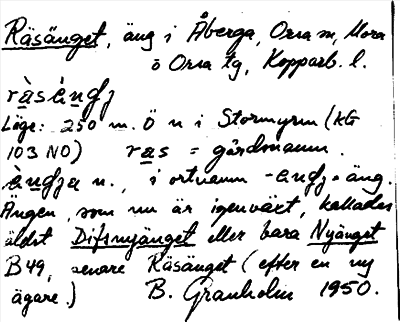 Räsänget, äng i Åberga, Orsa sn, Mora
o Orsa tg, Kopparb. l.
ràsèngʒ
Läge: 250 m. Ö n i Stormyren (kG
103 NO) ras = gårdsnamn.
àngʒa n., i ortnamn -angʒ = äng.
Ängen, som nu är igenväxt, kallades
äldst Difsnyänget eller bara Nyänget
B49, senare Räsänget (efter en ny
ägare.) B. Granholm 1950.